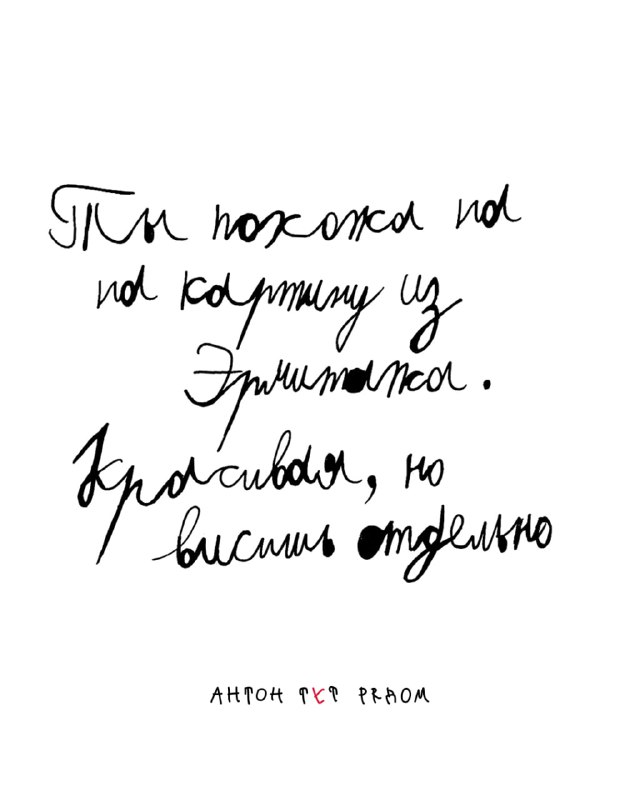 Ты похожа на
на картину из
Эрмитажа.
Красивая, но
висишь отдельно
АНТОН ТУТ РЯДОМ